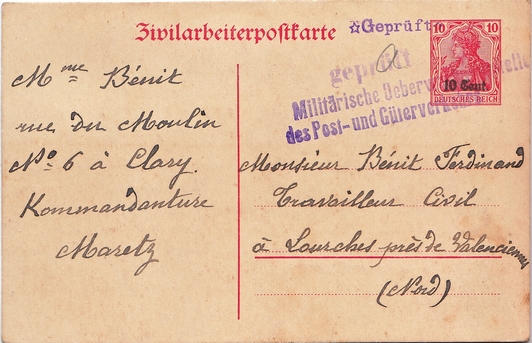 Zivilarbeiterpostkarte
☆Geprüft
10 10
10 Cent
DEUTSCHES REICH
geprüft
Militärische
des Post- und Güterverkehrs
Mme Bénit
rue du Moulin
No 6 à Clary
Kommandanture
Maretz
Monsieur Bénit Ferdinand
Travailleur Civil
à Lourches près de Valenciennes
(Nord)